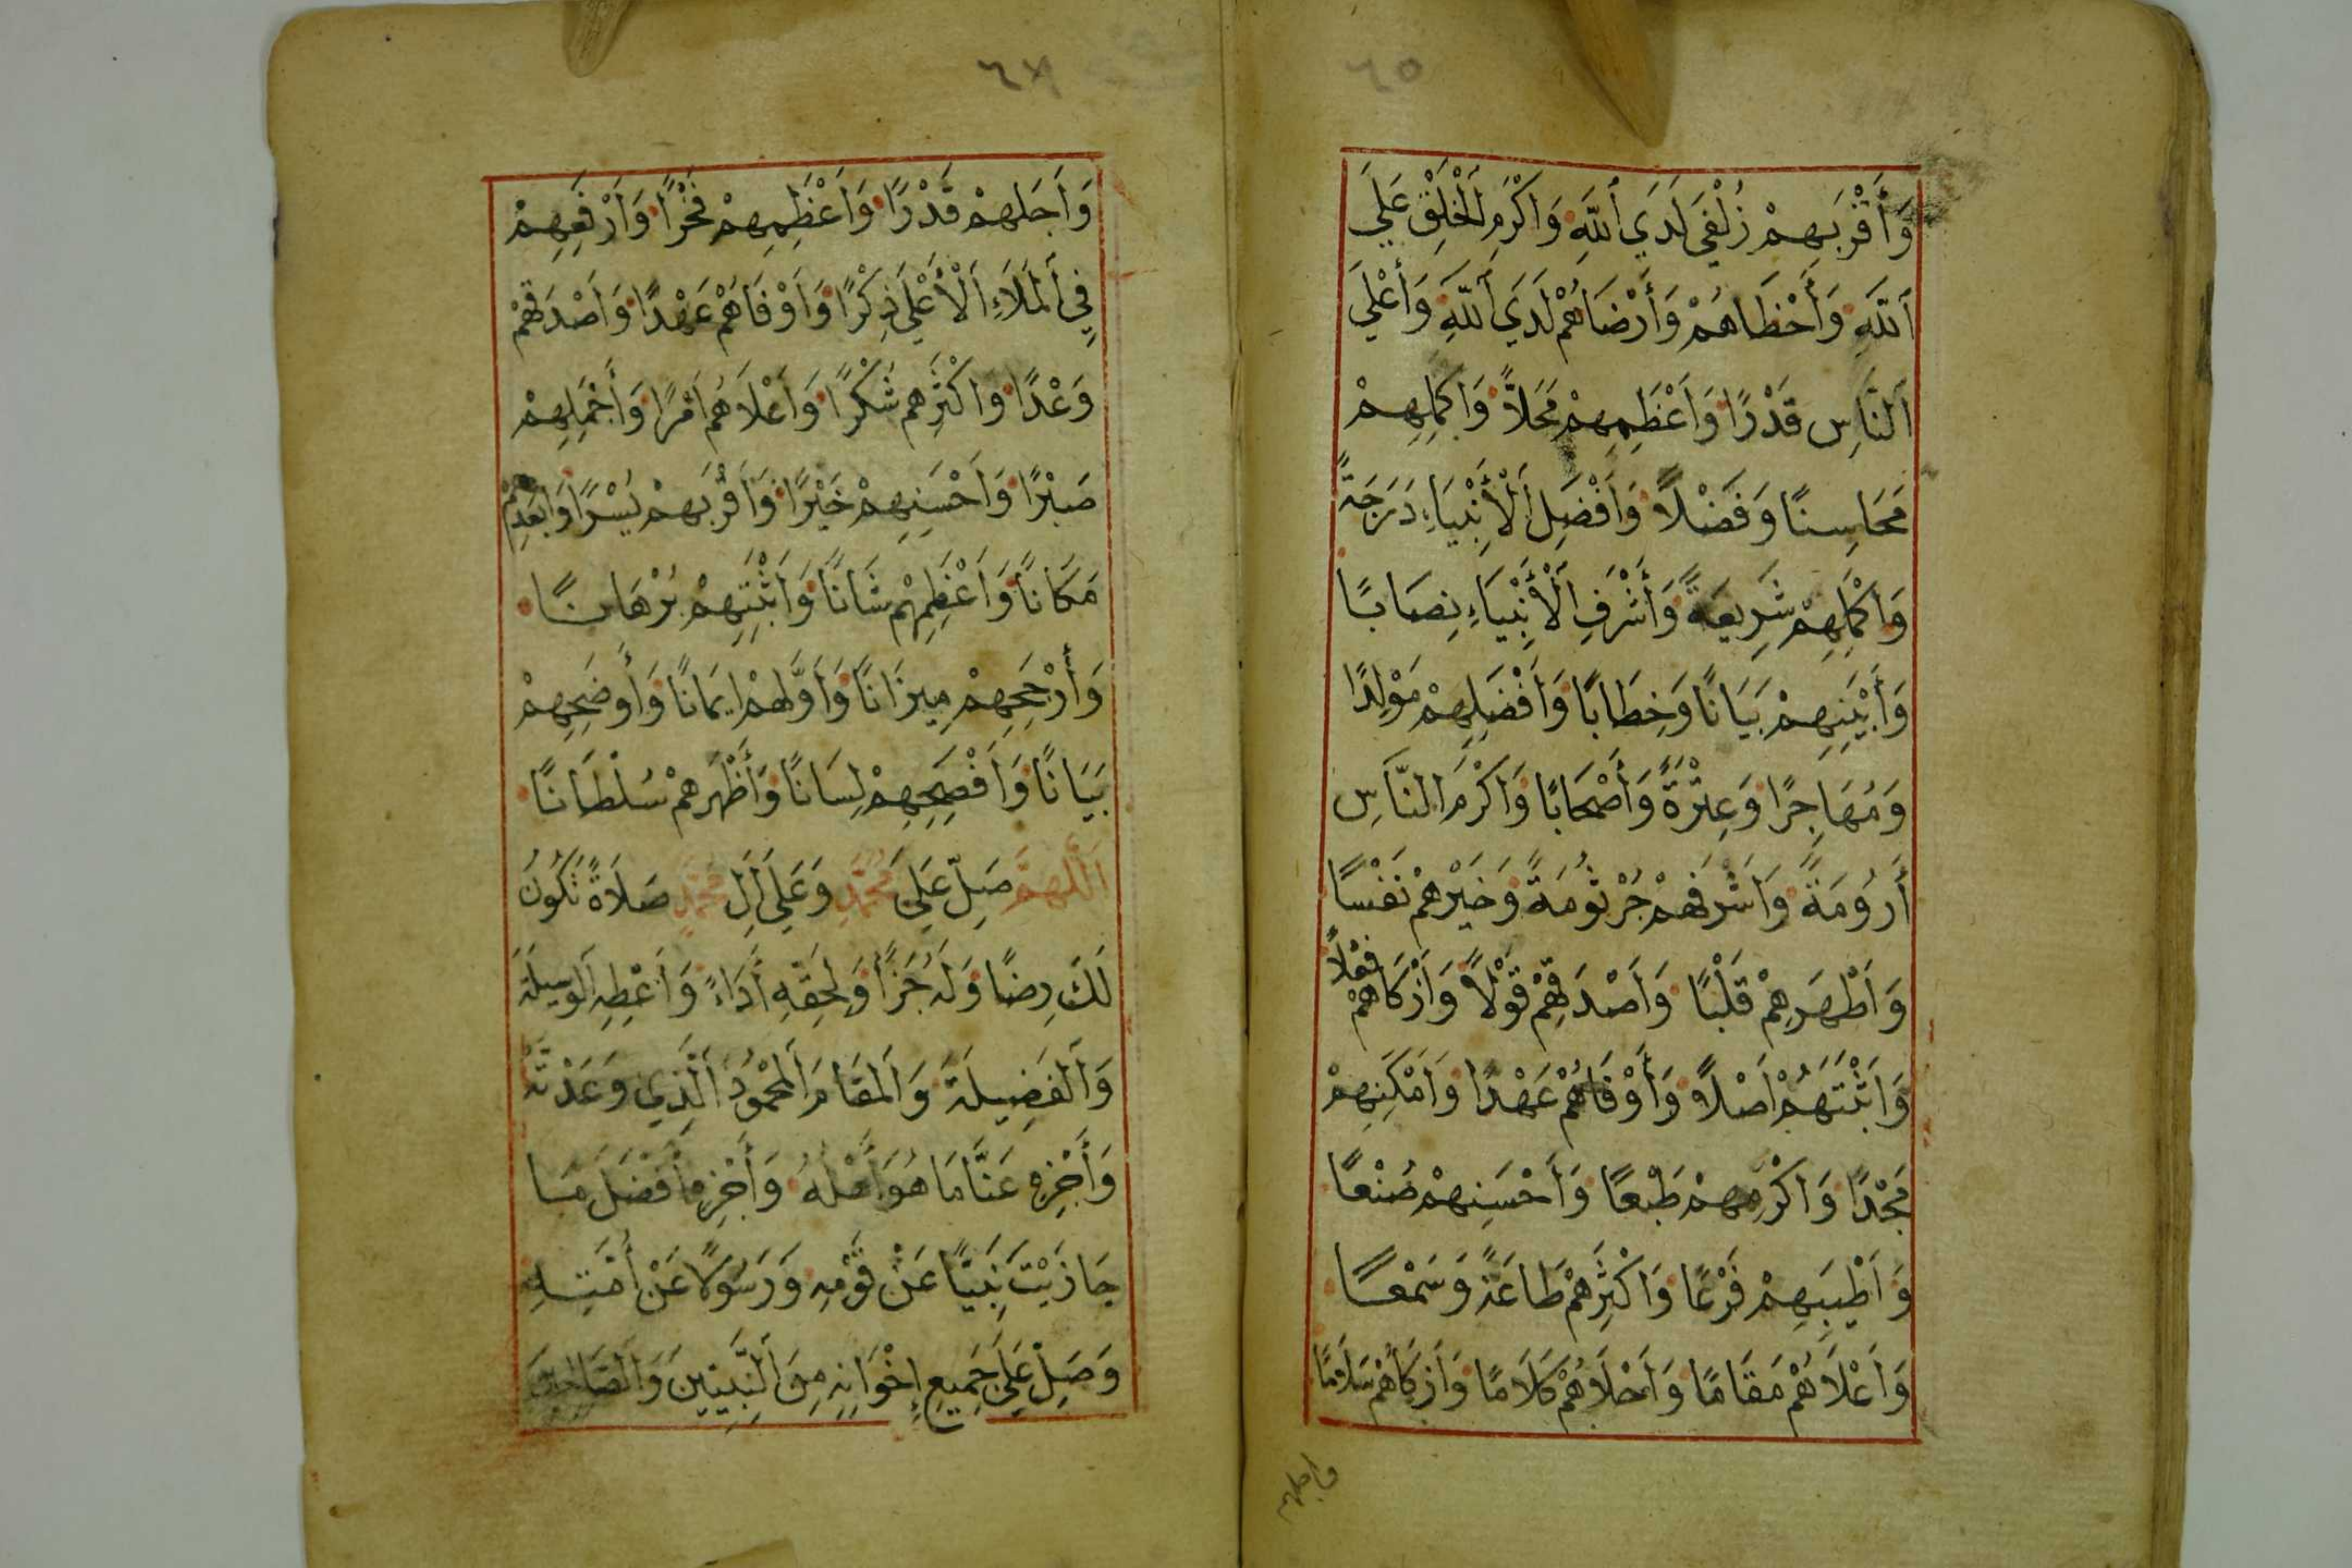 ٦٥
وَأَقْرَبِهِمْ زُلْفَي لَدَي اَللَّهِ وَاَكْرَمِ اَلْخَلْقِ عَلَي
اَللَّهِ وَأَحْظَاهُمْ وَأَرْضَاهُمْ لَدَي اَللَّهِ وَأَعْلَي
اَلنَّاسِ قَدْرًا وَاَعْظَمِهِمْ مَحَلاًّ وَاَكْمَلِهِمْ
مَحَاسِنًا وَفَضْلاً وَاَفْضَلِ اَلْأَنْبِيَاءِ دَرَجَةً
وَاَكْمَلِهِمْ شَرِيعَةً وَأَشْرَفِ اَلْأَنْبِيَاءِ نِصَابًا
وَأَبْيَنِهِمْ بَيَانًا وَخِطَابًا وَاَفْضَلِهِمْ مَوْلِدًا
وَمُهَاجِرًا وَعِتْرَةً وَأَصْحَابًا وَاَكْرَمِ النَّاسِ
أَرُومَةً وَاَشْرَفِهِمْ جُرْثُومَةً وَخَيْرِهِمْ نَفْسًا
وَاَطْهَرِهِمْ قَلْبًا وَاَصْدَقِهِمْ قَوْلاً وَاَزْكَاهُمْ فِعْلاً
وَاَثْبَتَهُمْ اَصْلاً وَأَوْفَاهُمْ عَهْدًا وَاَمْكَنِهِمْ
مَجْدًا وَاَكْرَمِهِمْ طَبْعًا وَاَحْسَنِهِمْ صُنْعًا
وَاَطْيَبِهِمْ فَرْعًا وَاَكْثَرِهِمْ طَاعَةً وَسَمْعًا
وَاَعْلاَهُمْ مَقَامًا وَاَحْلاَهُمْ كَلاَمًا وَاَزْكَاهُمْ سَلاَمًا
وَاَجَلِهِمْ
وَاَجَلِهِمْ قَدْرًا وَاَعْظَمِهِمْ فَخْرًا وَاَرْفَعِهِمْ
فِي اَلْمَلاَءِ اَلْأَعْلَي ذِكْرًا وَاَوْفَاهُمْ عَهْدًا وَاَصْدَقِهِمْ
وَعْدًا وَاَكْثَرِهِم شُكْرًا وَاَعْلاَهُمُ اَمْرًا وَأَجْمَلِهِمْ
صَبْرًا وَاَحْسَنِهِمْ خَيْرًا وَاَقْرَبِهِمْ يُسْرًا وَاَبْعَدِهِمْ
مَكَانًا وَاَعْظَمِهِمْ شَانًا وَاَثْبَتِهِمْ بُرْهَانًا
وَأَرْجَحِهِمْ مِيزَانًا وَاَوَّلِهِمْ اِيمَانًا وَأَوضَحِهِمْ
بَيَانًا وَاَفْصَحِهِمْ لِسَانًا وَأَظْهَرِهِمْ سُلْطَانًا
اَللَّهُمَّ صَلِّ عَلَي مُحَمَّدٍ وَعَلَي اَلِ مُحَمَّدٍ صَلاَةً تَكُونُ
لَكَ رِضًا وَلَهُ جَزَاً وَلِحَقِّهِ أَدَاءً وَاَعْطِهِ اَلْوَسِيلَةَ
وَاَلْفَضِيلَةَ وَاَلْمَقَامَ اَلْمَحْمُودَ اَلَّذِي وَعَدْتَهُ
وَأَجْزِهِ عَنَّا مَا هُوَ اَهْلُهُ وَأَجْزِهِ أَفْضَلَ مَا
جَازَيْتَ نَبِيًّا عَنْ قَوْمِهِ وَرَسُولاً عَنْ أُمَّتِهِ
وَصَلِّ عَلَي جَمِيعِ إِخْوَانِهِ مِنَ اَلنَّبِيِينَ وَاَلصَّالِحِينَ